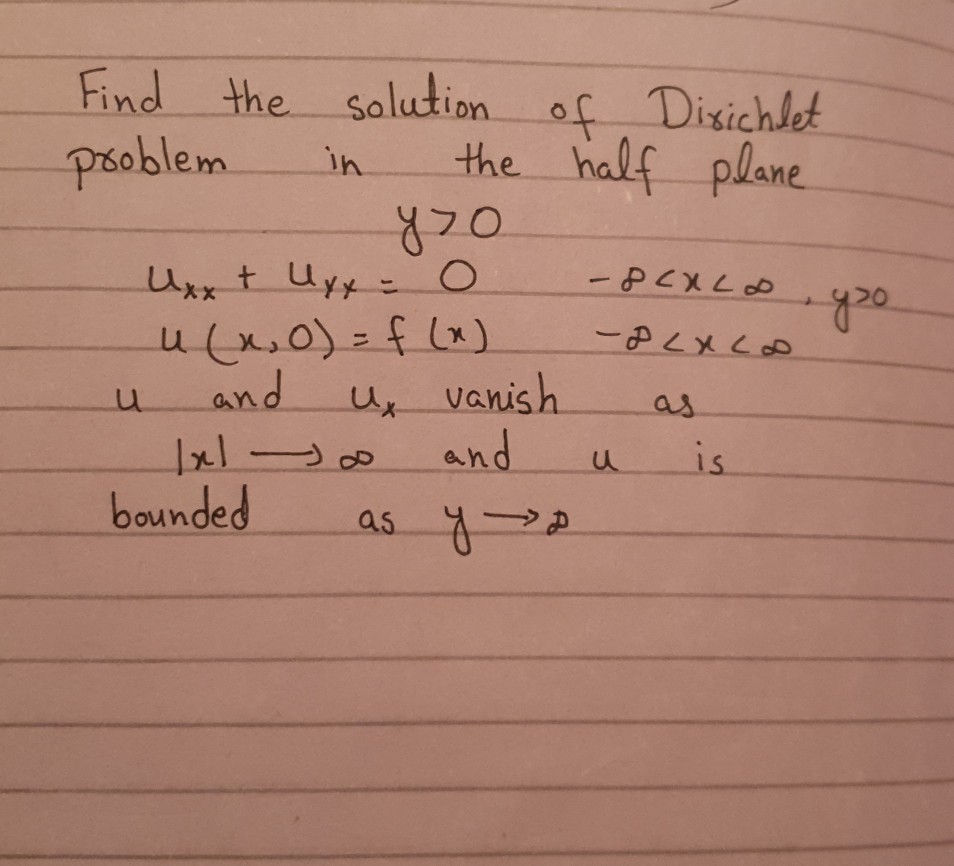 Find the solution of Dirichlet
problem in the half plane
y>0
u_xx + u_yx = 0 -∞<x<∞, y>0
u(x,0) = f(x) -∞<x<∞
u and u_x vanish as
|x| → ∞ and u is
bounded as y → ∞